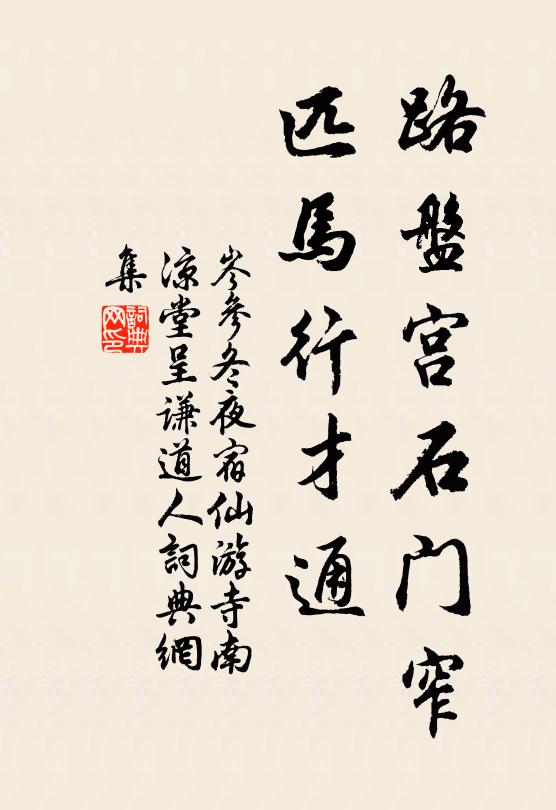 路盤宫石门窄
匹馬行才通
岑参冬夜宿仙游寺南
凉堂呈谦道人詞典網
集
詞典
网印